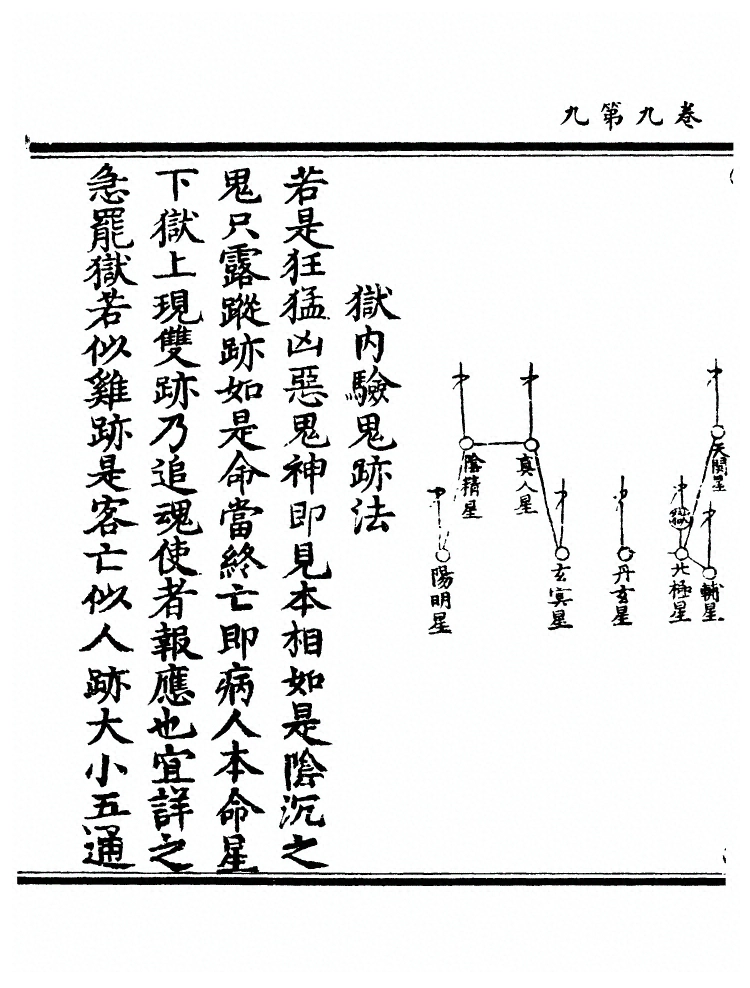 卷九第九
天關星
輔星
北極星
丹玄星
玄冥星
真人星
陰精星
陽明星
獄內驗鬼跡法
若是狂猛凶惡鬼神即見本相如是陰沉之
鬼只露蹤跡如是命當終亡即病人本命星
下獄上現雙跡乃追魂使者報應也宜詳之
急罷獄若似雞跡是客亡似人跡大小五通